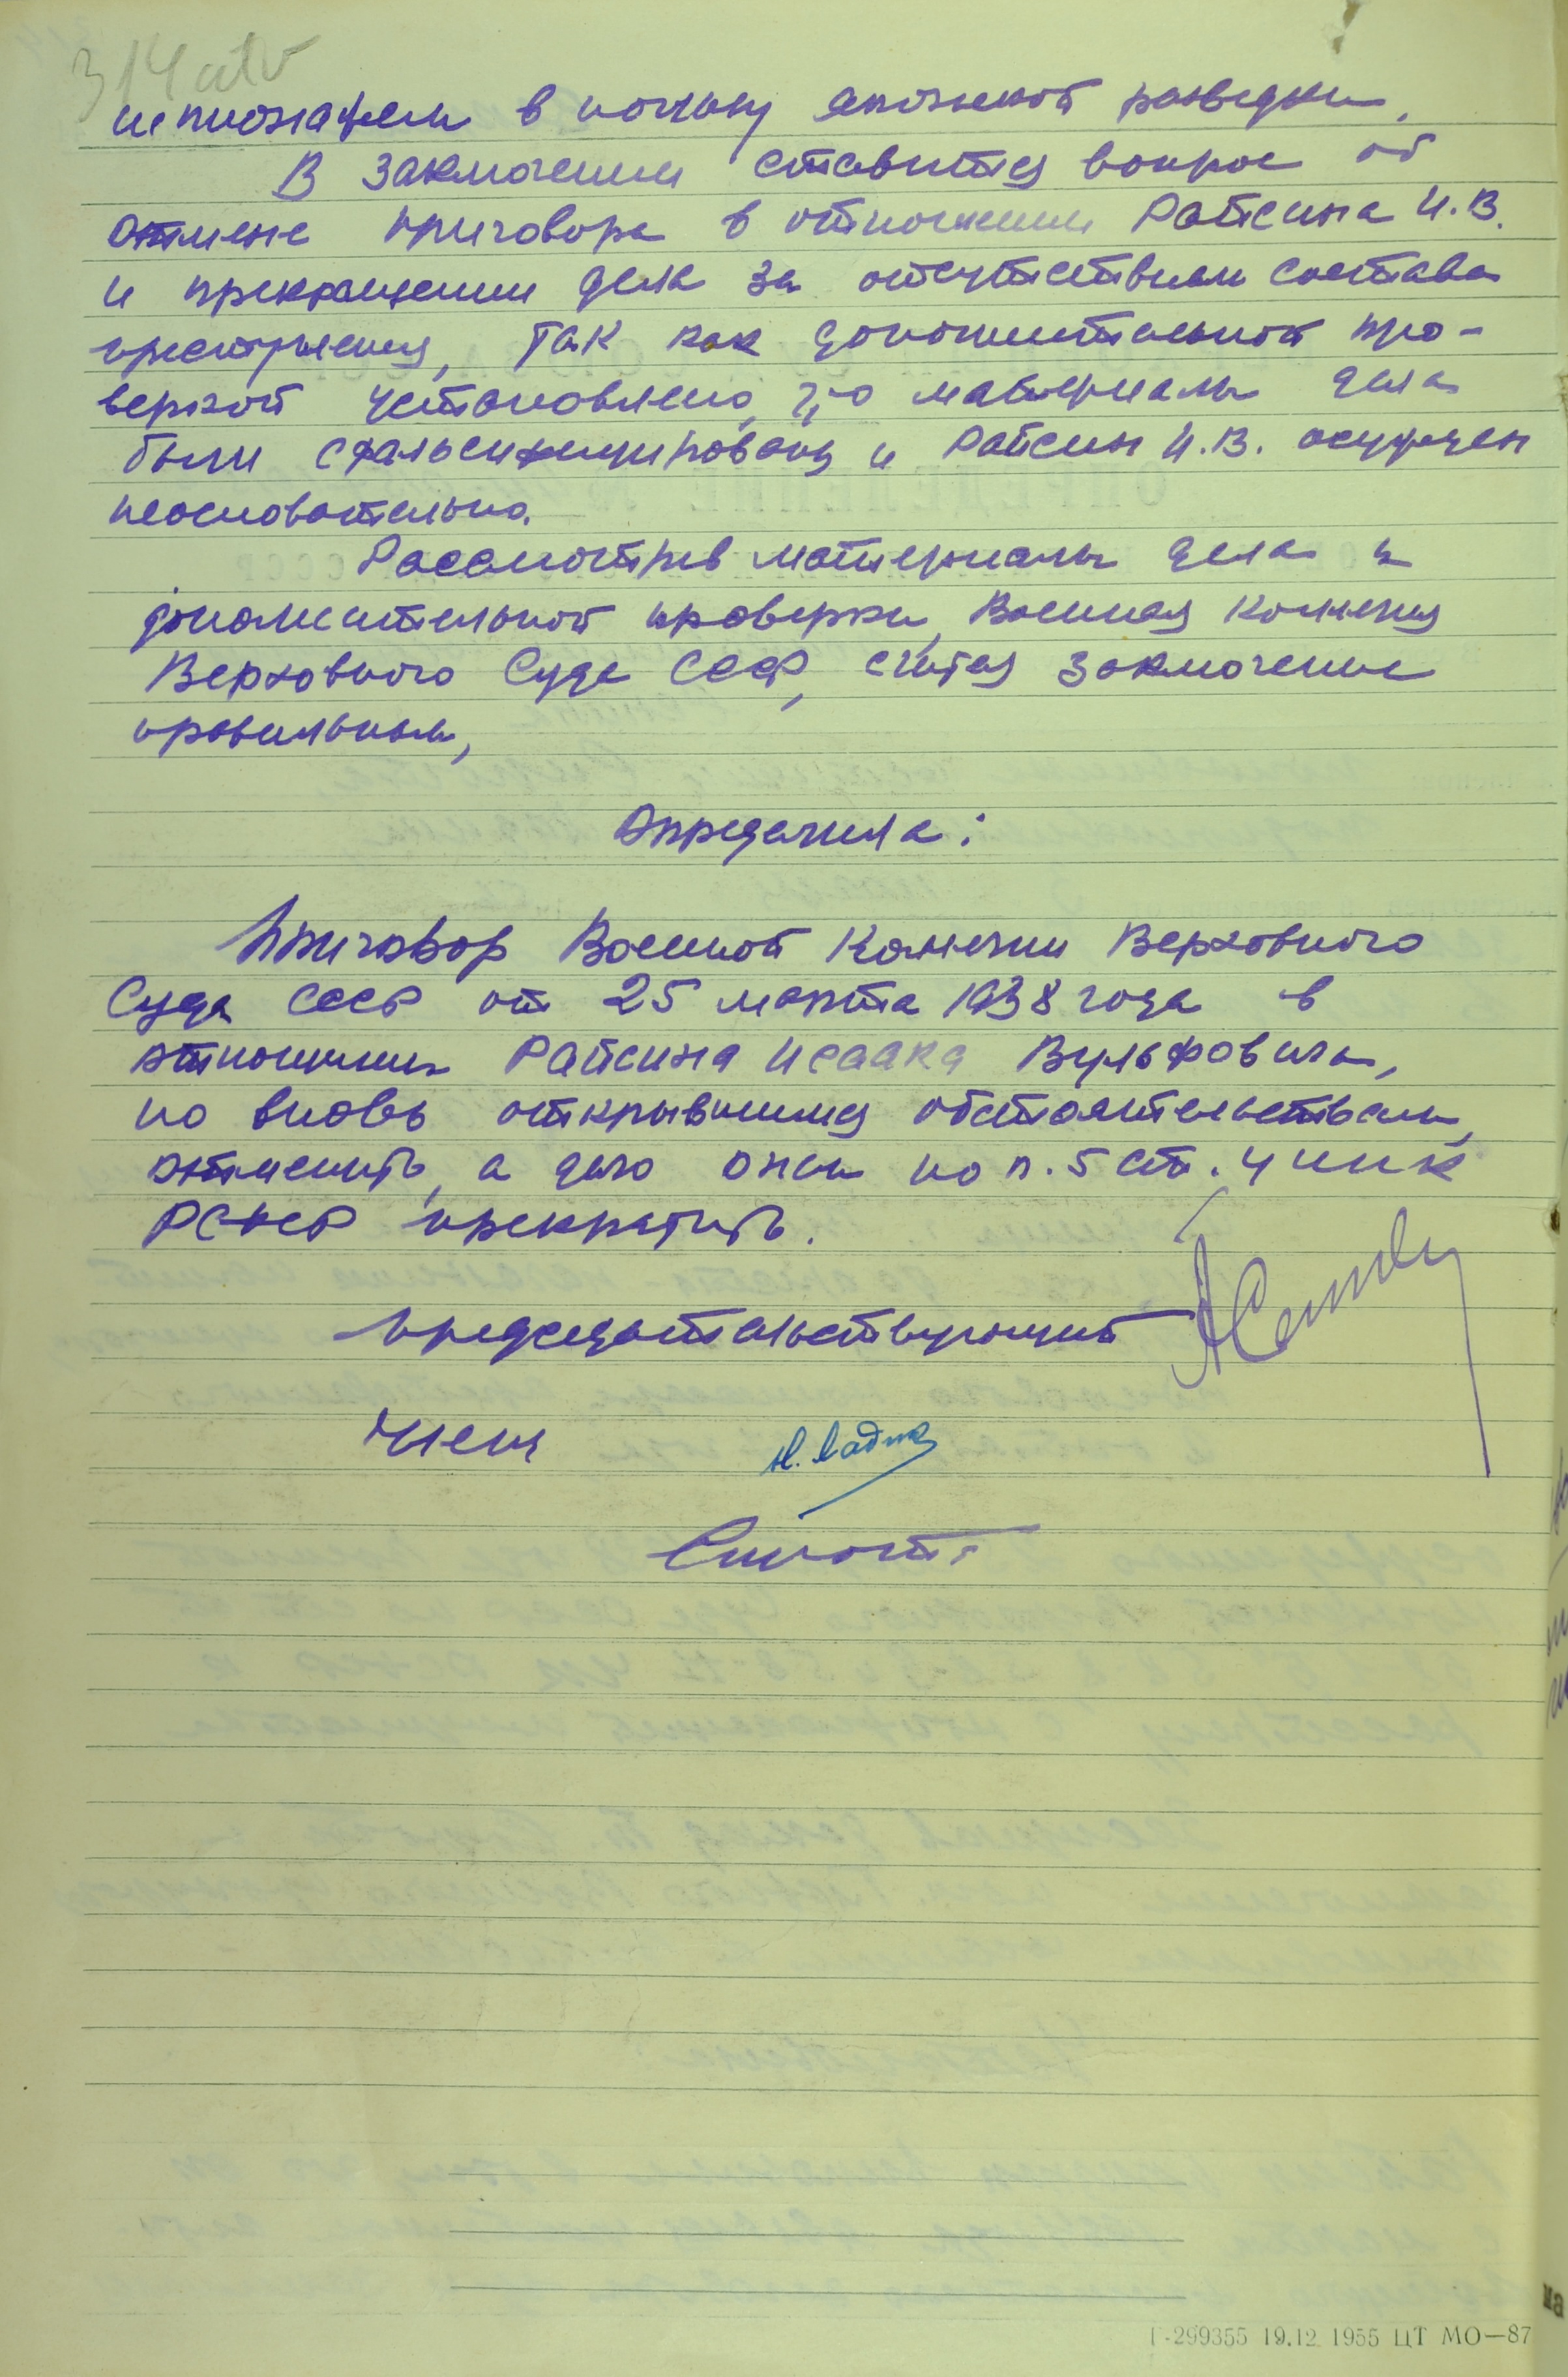 314 об
шпионажем в пользу японской разведки.
В заключении ставится вопрос об
отмене приговора в отношении Райсина И.В.
и прекращении дела за отсутствием состава
преступления, так как дополнительной про-
веркой установлено, что материалы дела
были сфальсифицированы и Райсин И.В. осужден
неосновательно.
Рассмотрев материалы дела и
дополнительной проверки, Военная Коллегия
Верховного Суда СССР, считая заключение
правильным,
Определила:
Приговор Военной Коллегии Верховного
Суда СССР от 25 марта 1938 года в
отношении Райсина Исаака Вульфовича,
по вновь открывшимся обстоятельствам,
отменить, а дело о нем по п. 5 ст. 4 УПК
РСФСР прекратить.
Председательствующий
Члены
Г-299355 19.12 1955 ЦТ МО—87